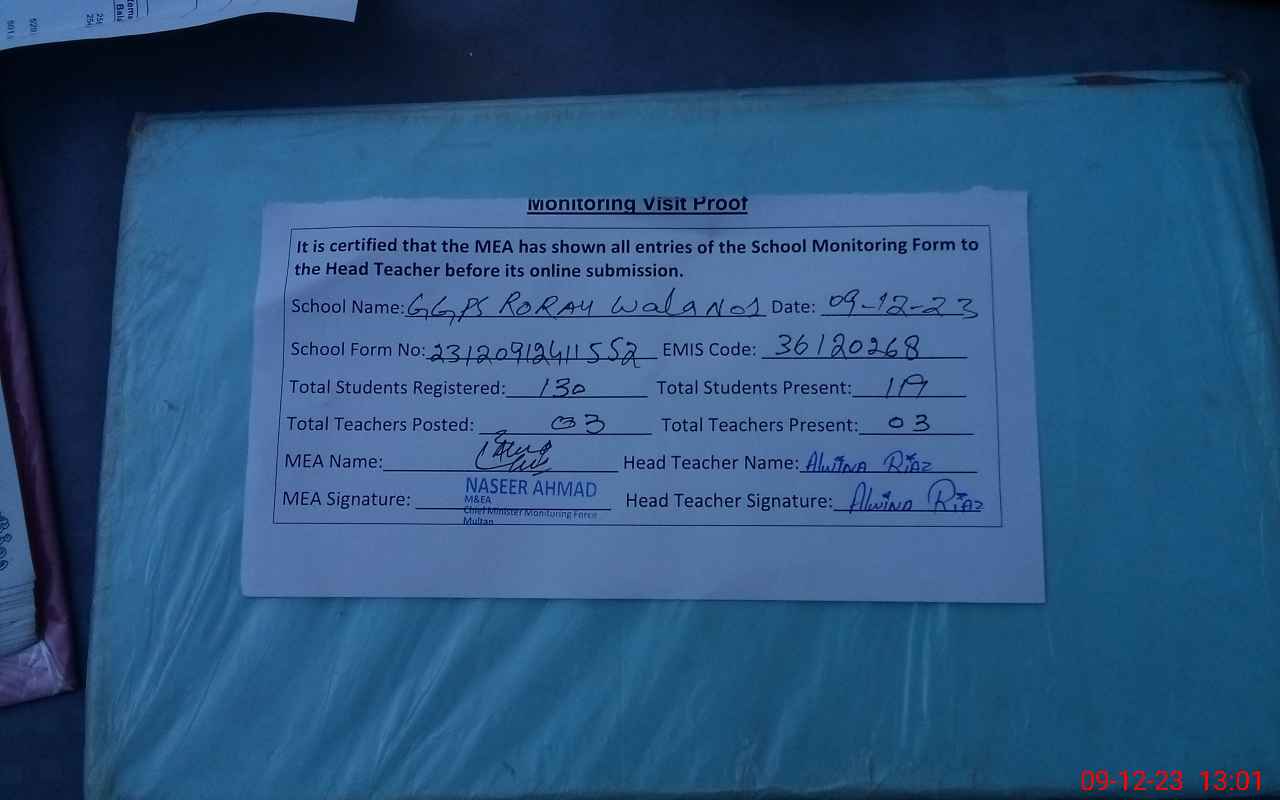 Monitoring Visit Proof
It is certified that the MEA has shown all entries of the School Monitoring Form to
the Head Teacher before its online submission.
School Name: GGPS RORAY Wala No1 Date: 09-12-23
School Form No: 23120912411552 EMIS Code: 36120268
Total Students Registered: 130 Total Students Present:
Total Teachers Posted: 03 Total Teachers Present: 03
MEA Name: Head Teacher Name: Alwina Riaz
MEA Signature: NASEER AHMAD Head Teacher Signature: Alwina Riaz
M&EA
Chief Minister Monitoring Force
Multan
09-12-23 13:01